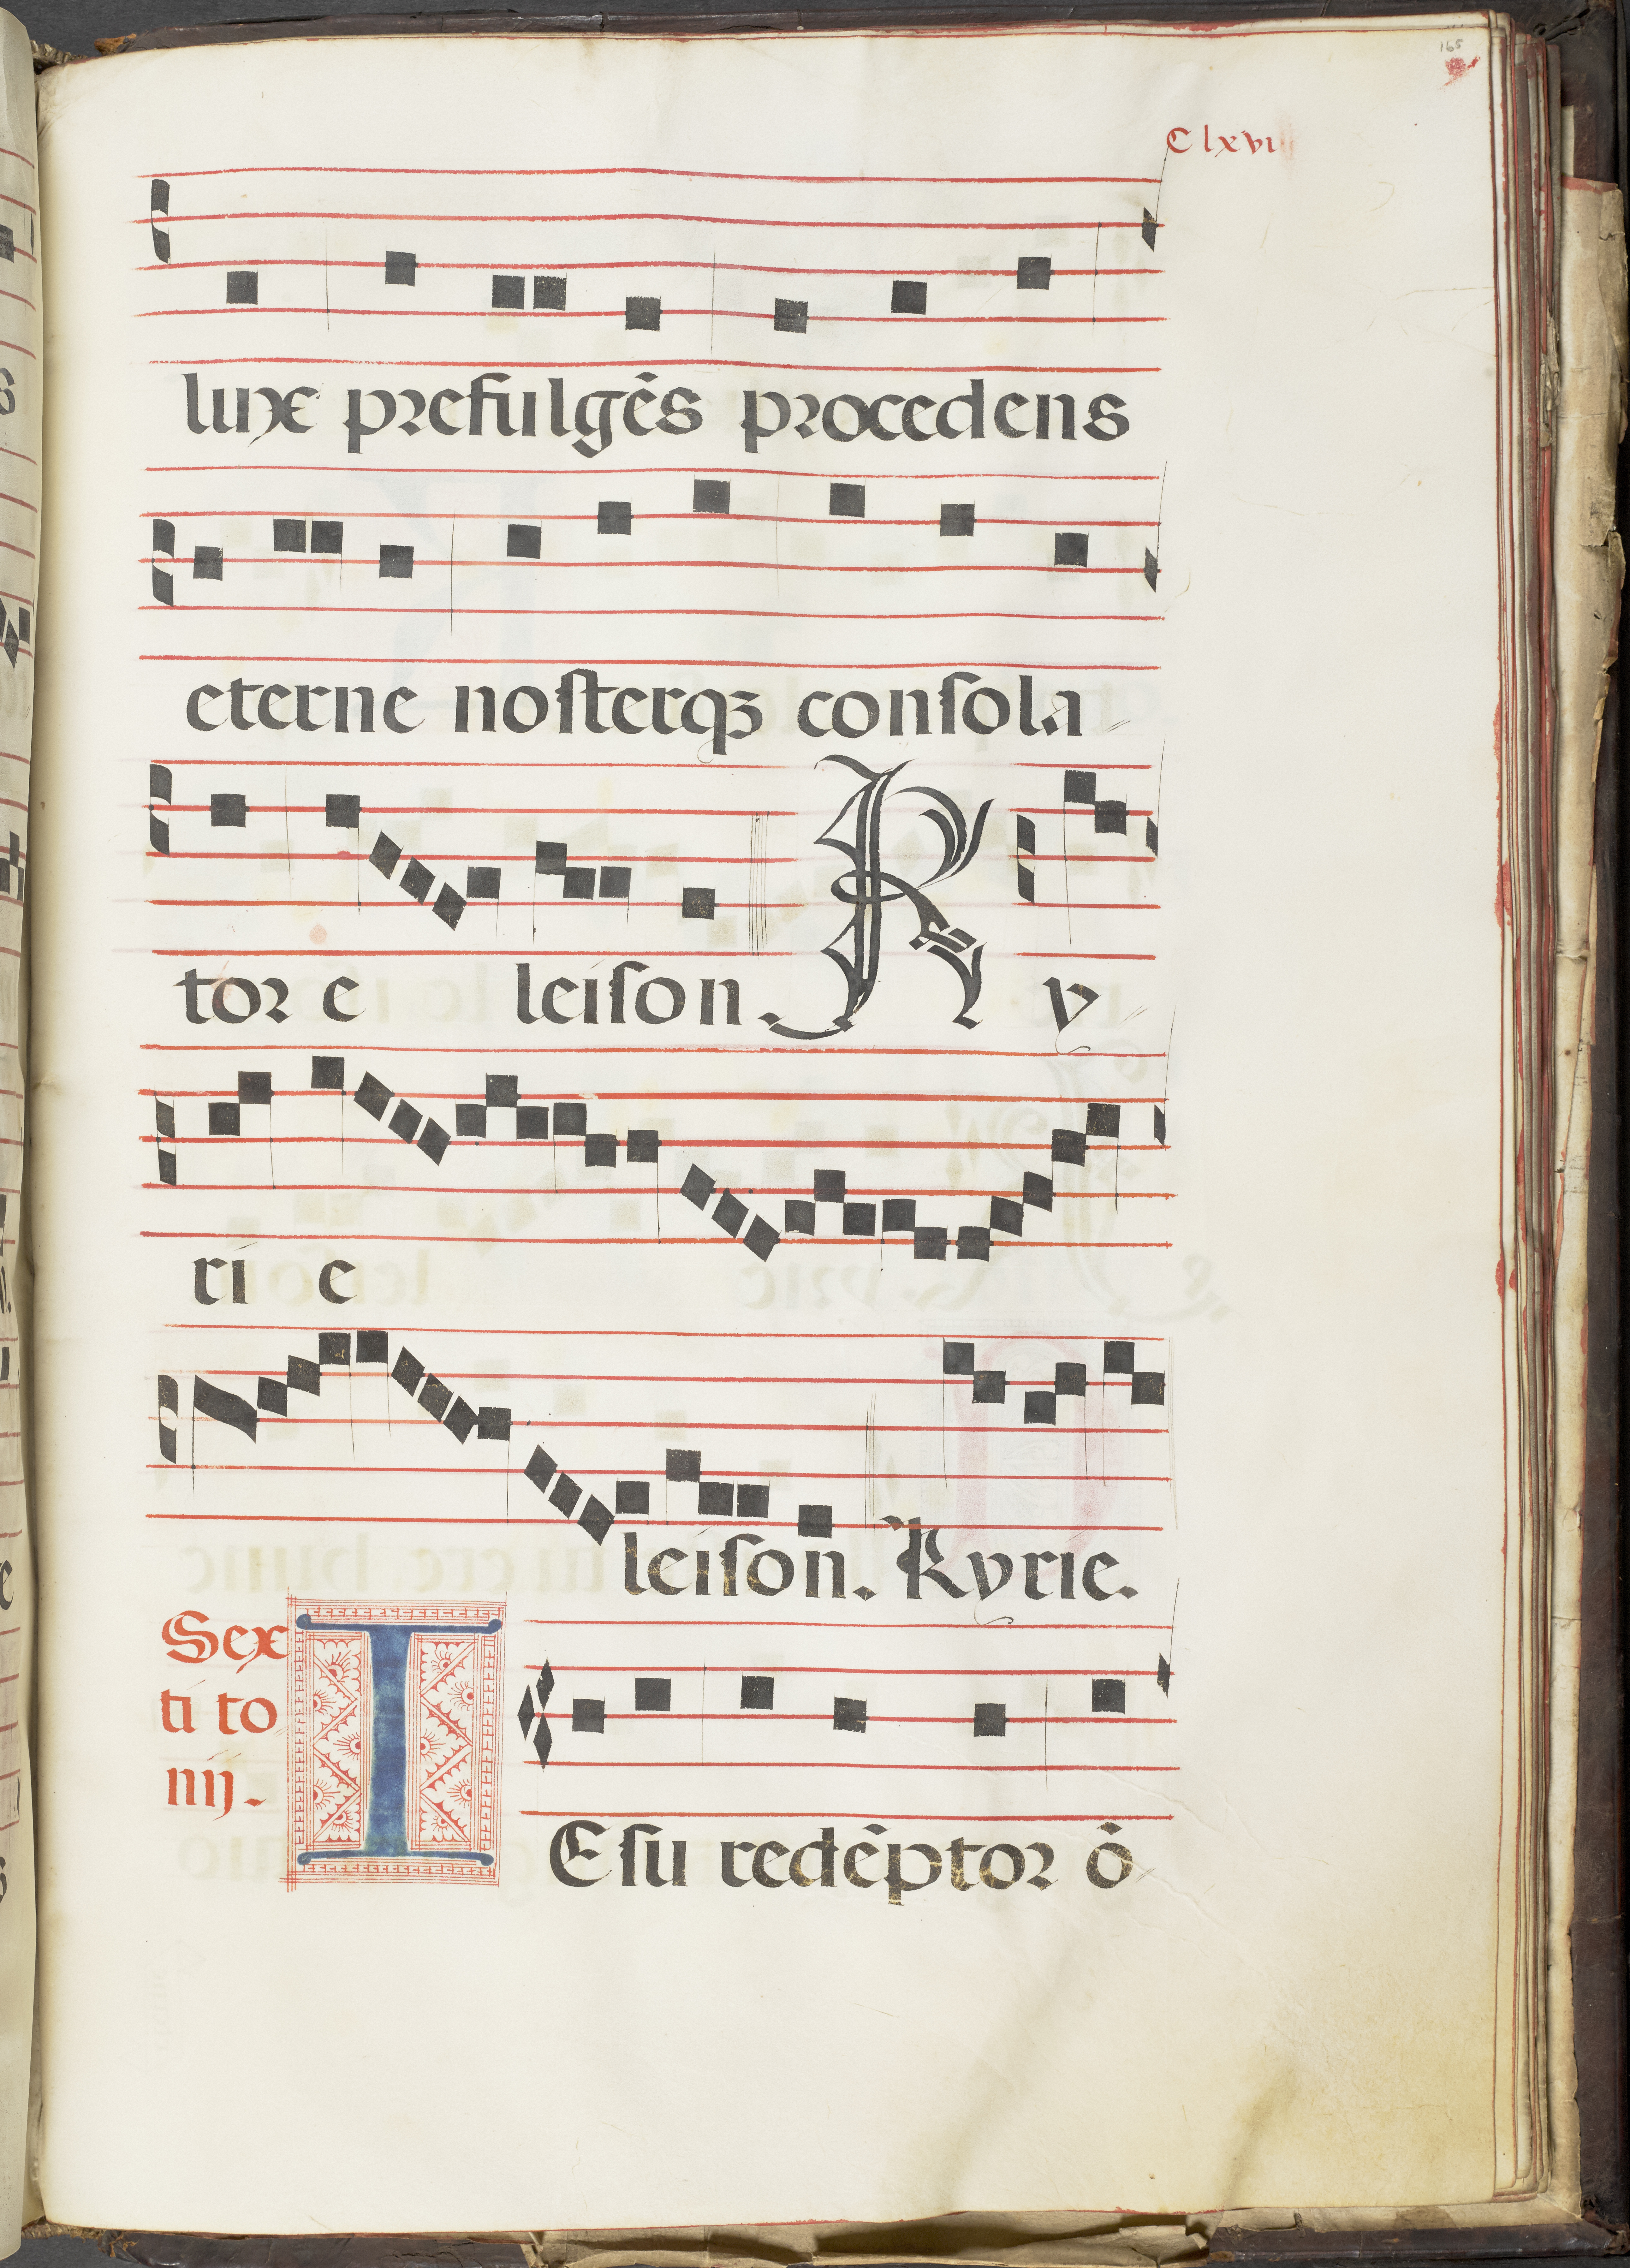 165
Clxvi
luxe prefulgēs procedens
eterne noſterqꝫ conſola
tor e leiſon. K y
ri e
leiſon. Kyrie.
Sex
ti to
nij.
I Eſu redēptor ō